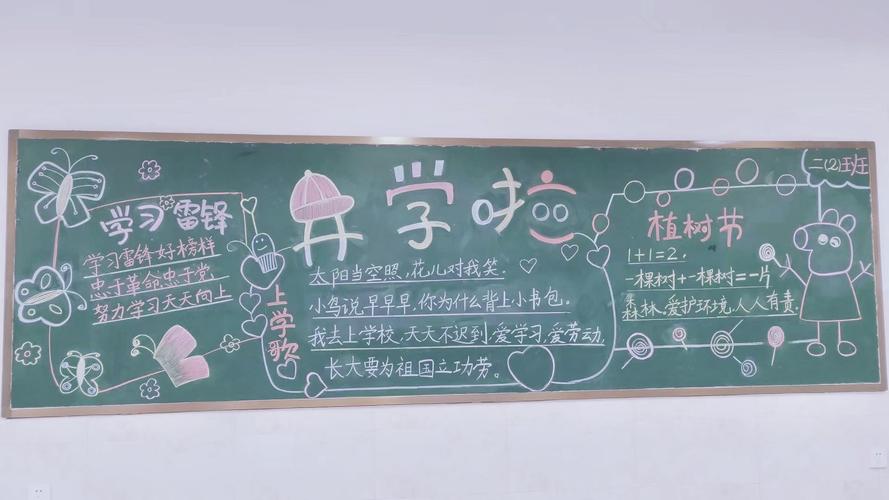 开学啦
二(2)班
学习雷锋
学习雷锋好榜样
忠于革命忠于党
努力学习天天向上
上学歌
太阳当空照,花儿对我笑.
小鸟说早早早,你为什么背上小书包。
我去上学校,天天不迟到,爱学习,爱劳动,
长大要为祖国立功劳。
植树节
1+1=2.
一棵树+一棵树=一片
森林、爱护环境,人人有责.